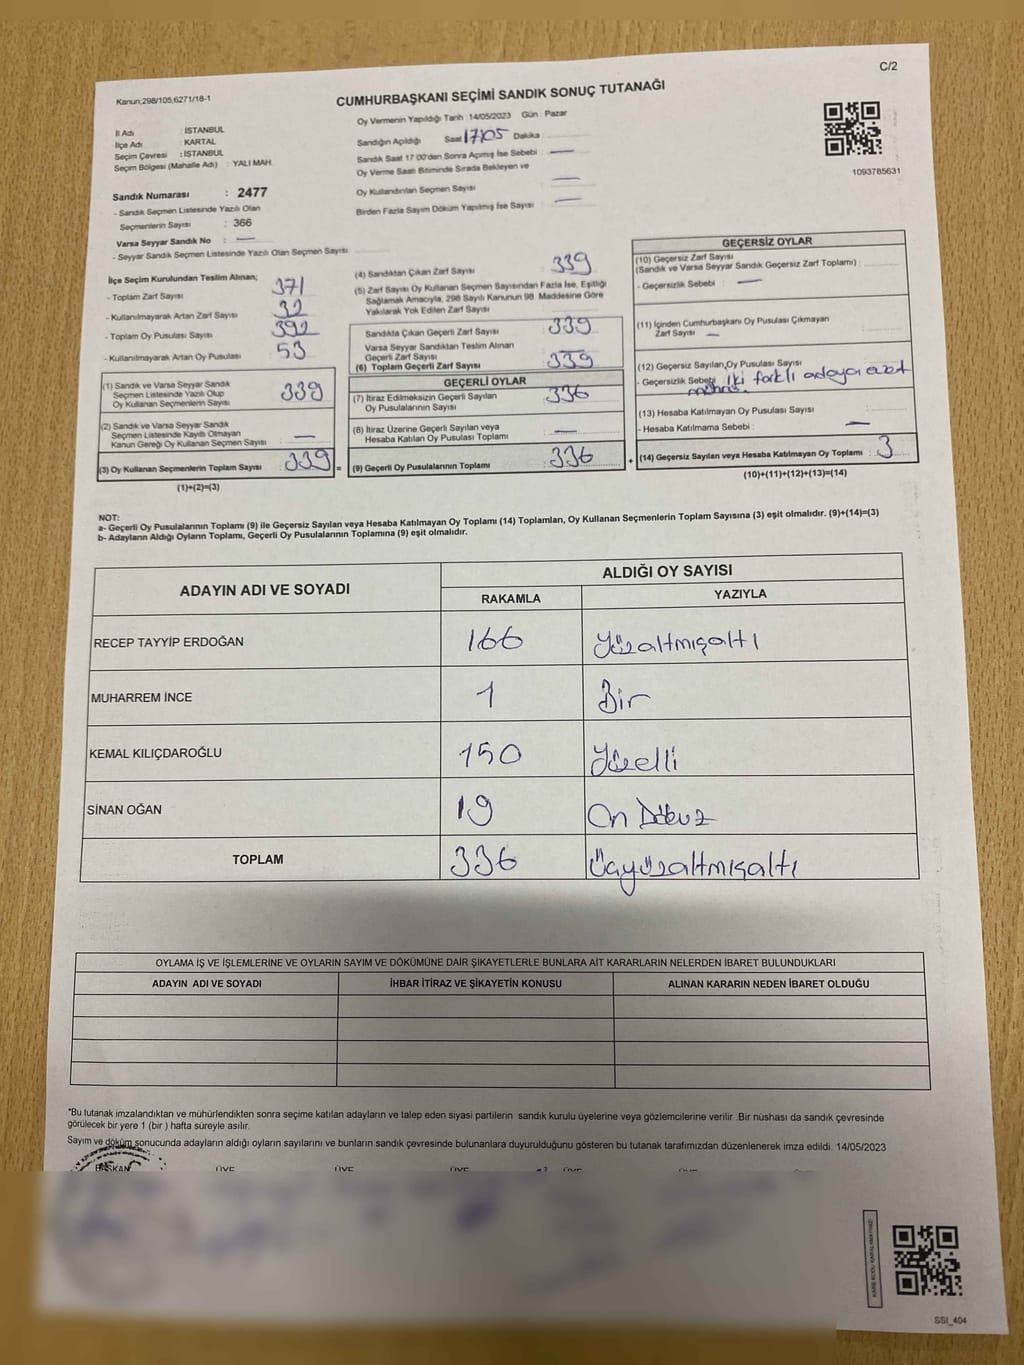 C/2
Kanun;298/105;6271/18-1
CUMHURBAŞKANI SEÇİMİ SANDIK SONUÇ TUTANAĞI
İl Adı : İSTANBUL
İlçe Adı : KARTAL
Seçim Çevresi : İSTANBUL
Seçim Bölgesi (Mahalle Adı) : YALI MAH.
Sandık Numarası : 2477
- Sandık Seçmen Listesinde Yazılı Olan
Seçmenlerin Sayısı : 366
Varsa Seyyar Sandık No : —
- Seyyar Sandık Seçmen Listesinde Yazılı Olan Seçmen Sayısı
Oy Vermenin Yapıldığı Tarih : 14/05/2023 Gün : Pazar
Sandığın Açıldığı Saat 17:05 Dakika :
Sandık Saat 17:00'den Sonra Açmış İse Sebebi : —
Oy Verme Saati Bitiminde Sırada Bekleyen ve
Oy Kullandırılan Seçmen Sayısı —
Birden Fazla Sayım Döküm Yapılmış İse Sayısı : —
1093785631
İlçe Seçim Kurulundan Teslim Alınan;
- Toplam Zarf Sayısı 371
- Kullanılmayarak Artan Zarf Sayısı : 32
- Toplam Oy Pusulası Sayısı 392
- Kullanılmayarak Artan Oy Pusulası 53
(1) Sandık ve Varsa Seyyar Sandık
Seçmen Listesinde Yazılı Olup
Oy Kullanan Seçmenlerin Sayısı 339
(2) Sandık ve Varsa Seyyar Sandık
Seçmen Listesinde Kayıtlı Olmayan
Kanun Gereği Oy Kullanan Seçmen Sayısı : —
(3) Oy Kullanan Seçmenlerin Toplam Sayısı : 339 =
(1)+(2)=(3)
(4) Sandıktan Çıkan Zarf Sayısı : 339
(5) Zarf Sayısı Oy Kullanan Seçmen Sayısından Fazla İse, Eşitliği
Sağlamak Amacıyla, 298 Sayılı Kanunun 98. Maddesine Göre
Yakılarak Yok Edilen Zarf Sayısı
Sandıkta Çıkan Geçerli Zarf Sayısı : 339
Varsa Seyyar Sandıktan Teslim Alınan
Geçerli Zarf Sayısı
(6) Toplam Geçerli Zarf Sayısı : 339
GEÇERLİ OYLAR
(7) İtiraz Edilmeksizin Geçerli Sayılan
Oy Pusulalarının Sayısı : 336
(8) İtiraz Üzerine Geçerli Sayılan veya
Hesaba Katılan Oy Pusulası Toplamı : —
(9) Geçerli Oy Pusulalarının Toplamı : 336 +
GEÇERSİZ OYLAR
(10) Geçersiz Zarf Sayısı
(Sandık ve Varsa Seyyar Sandık Geçersiz Zarf Toplamı) :
- Geçersizlik Sebebi : —
(11) İçinden Cumhurbaşkanı Oy Pusulası Çıkmayan
Zarf Sayısı : —
(12) Geçersiz Sayılan Oy Pusulası Sayısı :
- Geçersizlik Sebebi : İki farklı adaya evet
(13) Hesaba Katılmayan Oy Pusulası Sayısı :
- Hesaba Katılmama Sebebi : —
(14) Geçersiz Sayılan veya Hesaba Katılmayan Oy Toplamı : 3
(10)+(11)+(12)+(13)=(14)
NOT:
a- Geçerli Oy Pusulalarının Toplamı (9) ile Geçersiz Sayılan veya Hesaba Katılmayan Oy Toplamı (14) Toplamları, Oy Kullanan Seçmenlerin Toplam Sayısına (3) eşit olmalıdır. (9)+(14)=(3)
b- Adayların Aldığı Oyların Toplamı, Geçerli Oy Pusulalarının Toplamına (9) eşit olmalıdır.
ADAYIN ADI VE SOYADI ALDIĞI OY SAYISI
RAKAMLA YAZIYLA
RECEP TAYYİP ERDOĞAN 166 Yüzaltmışaltı
MUHARREM İNCE 1 Bir
KEMAL KILIÇDAROĞLU 150 Yüzelli
SİNAN OĞAN 19 On Dokuz
TOPLAM 336 Üçyüzaltmışaltı
OYLAMA İŞ VE İŞLEMLERİNE VE OYLARIN SAYIM VE DÖKÜMÜNE DAİR ŞİKAYETLERLE BUNLARA AİT KARARLARIN NELERDEN İBARET BULUNDUKLARI
ADAYIN ADI VE SOYADI İHBAR İTİRAZ VE ŞİKAYETİN KONUSU ALINAN KARARIN NEDEN İBARET OLDUĞU
*Bu tutanak imzalandıktan ve mühürlendikten sonra seçime katılan adayların ve talep eden siyasi partilerin sandık kurulu üyelerine veya gözlemcilerine verilir .Bir nüshası da sandık çevresinde
görülecek bir yere 1 (bir ) hafta süreyle asılır.
Sayım ve döküm sonucunda adayların aldığı oyların sayılarını ve bunların sandık çevresinde bulunanlara duyurulduğunu gösteren bu tutanak tarafımızdan düzenlenerek imza edildi. 14/05/2023
BAŞKAN ÜYE ÜYE ÜYE ÜYE ÜYE
SSI_404